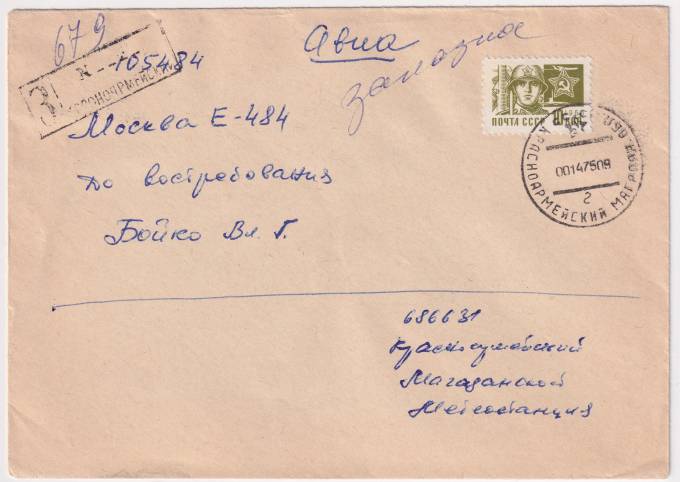 679
Авиа
заказное
З
N
105484
КРАСНОАРМЕЙСКИЙ
ПОЧТА СССР
Москва Е-484
до востребования
Бойко Вл. Г.
КРАСНОАРМЕЙСКИЙ МАГ
00147509
2
686631
Красноармейский
Магаданской
Метеостанция